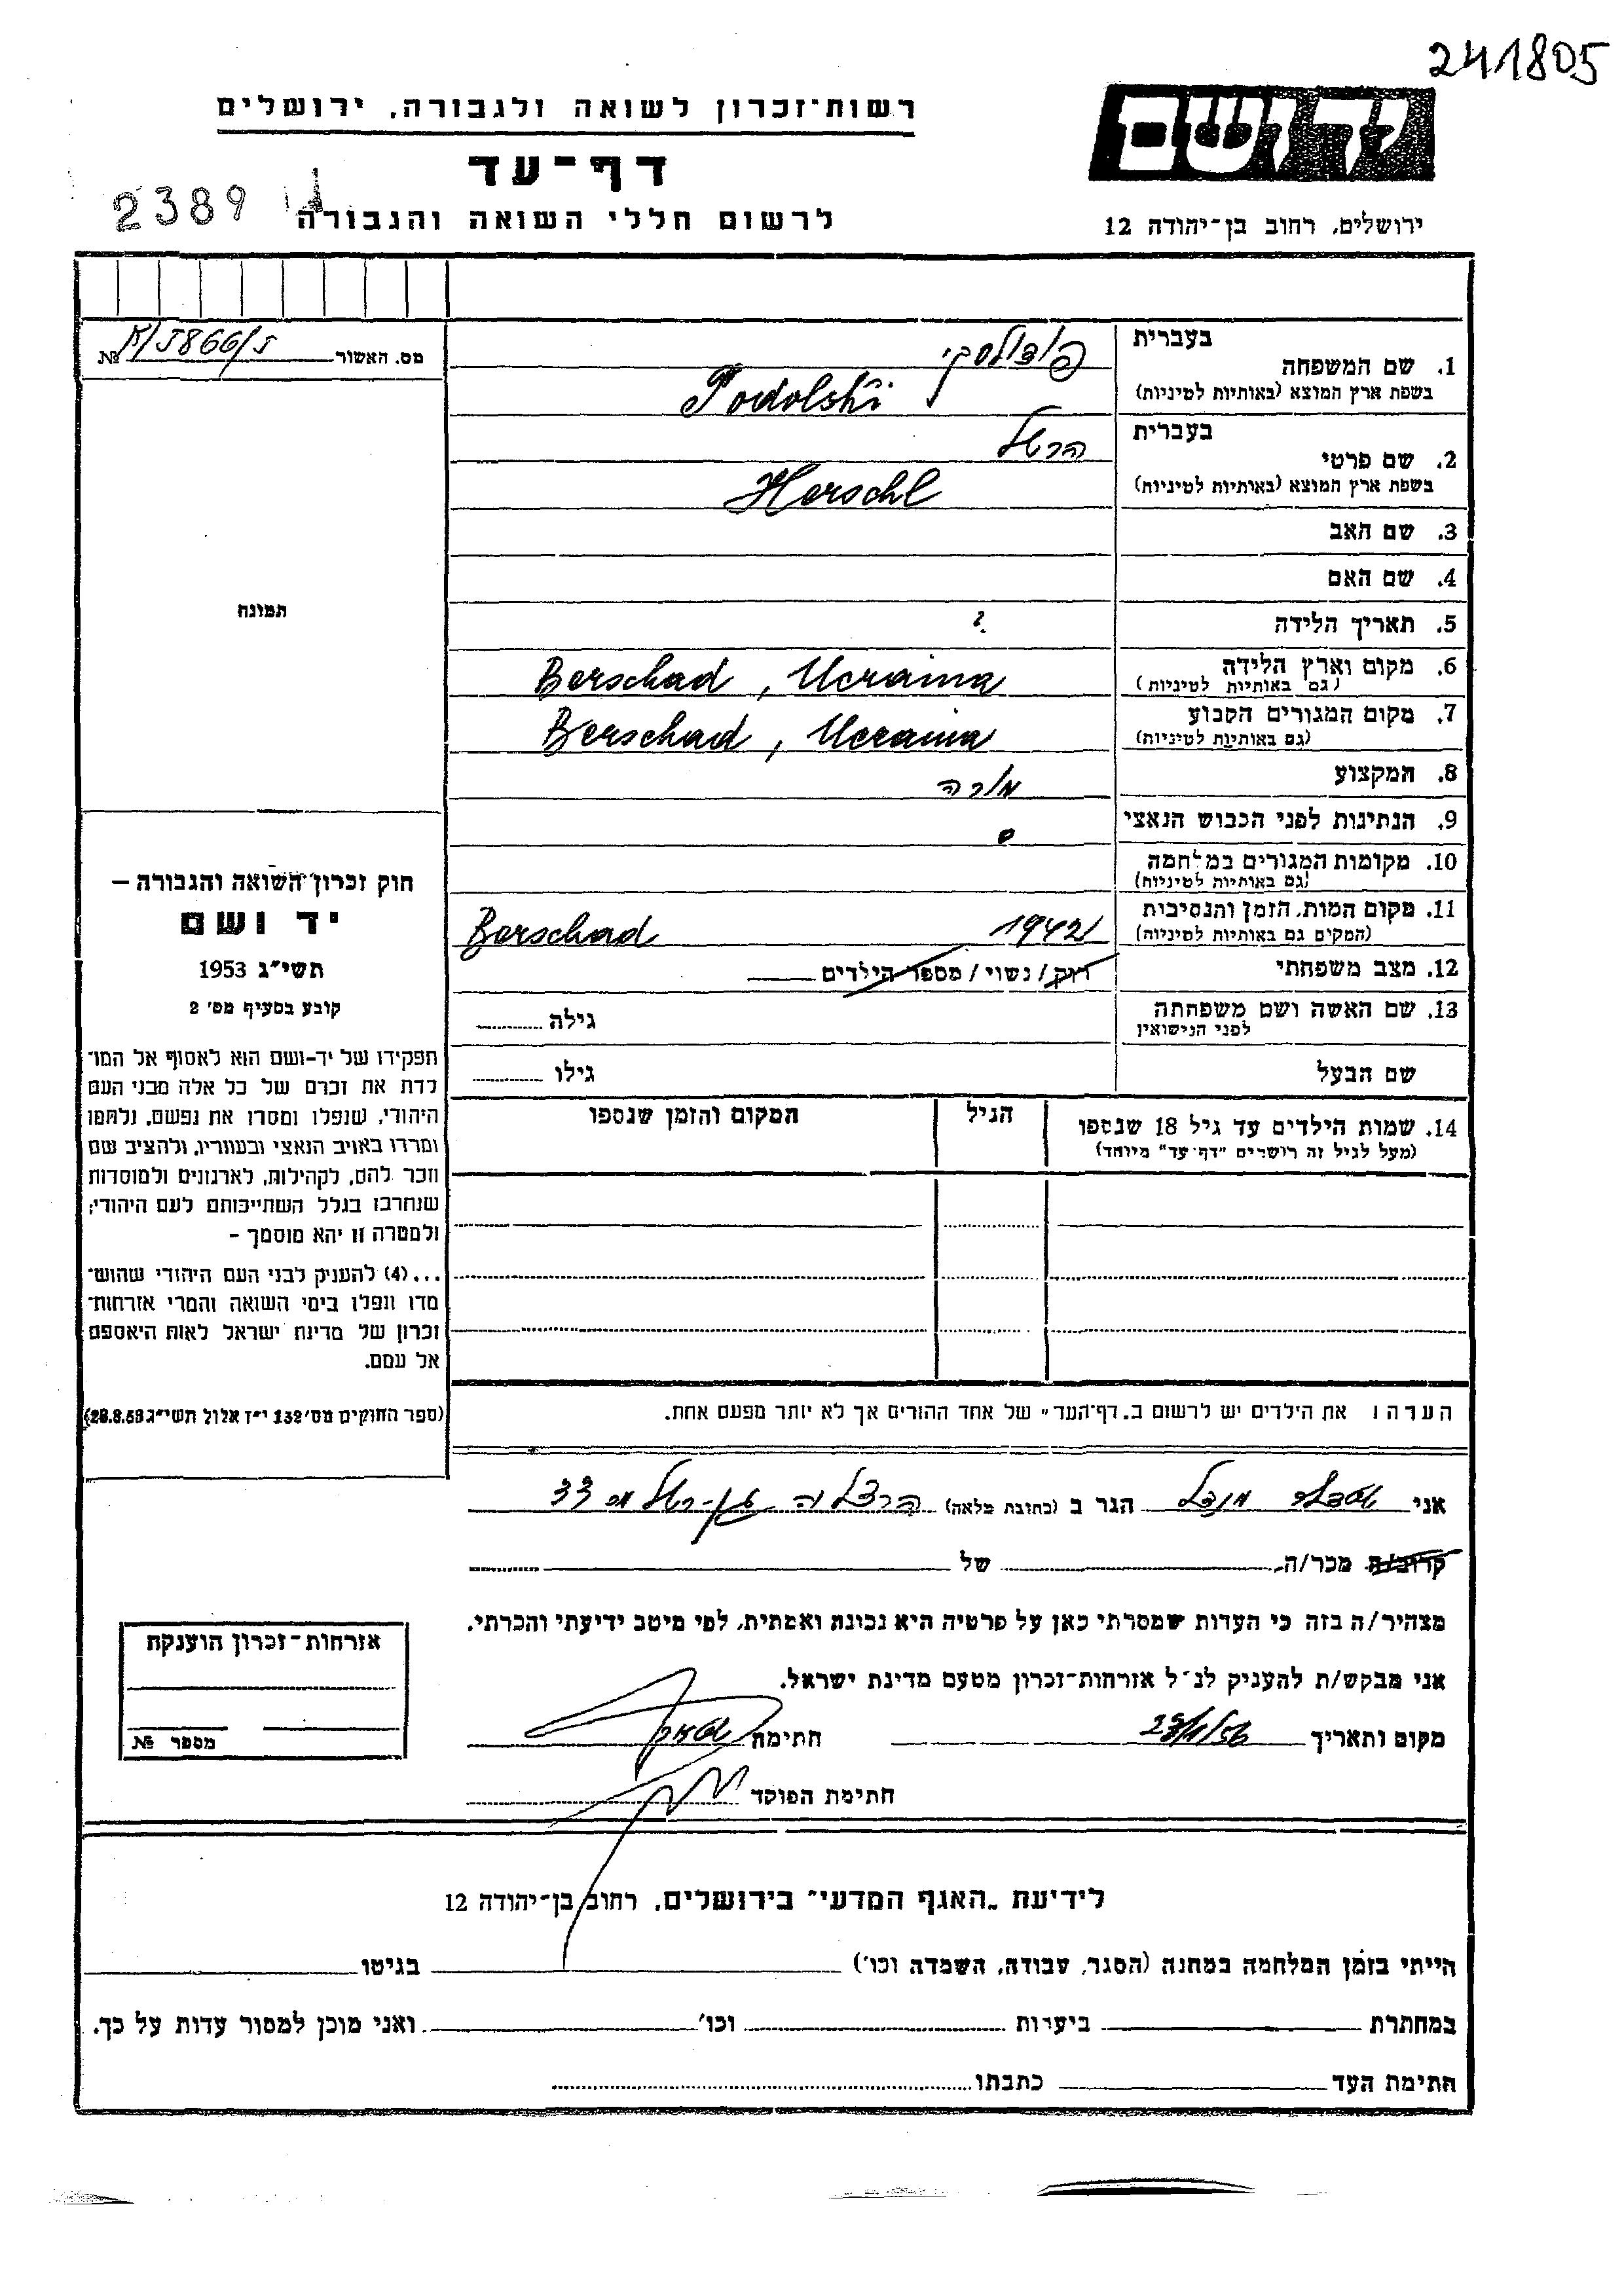 241805
רשות־זכרון לשואה ולגבורה, ירושלים
יד ושם
דף־עד
2389
לרשום חללי השואה והגבורה
ירושלים, רחוב בן־יהודה 12
מס. האשור №
בעברית
1. שם המשפחה פודולסקי
בשפת ארץ המוצא (באותיות לטיניות) Podolski
בעברית
2. שם פרטי הרשל
בשפת ארץ המוצא (באותיות לטיניות) Herschl
3. שם האב
4. שם האם
5. תאריך הלידה ?
6. מקום וארץ הלידה
(גם באותיות לטיניות) Berschad, Ucraina
7. מקום המגורים הקבוע
(גם באותיות לטיניות) Berschad, Ucraina
8. המקצוע מורה
9. הנתינות לפני הכבוש הנאצי
10. מקומות המגורים במלחמה
(גם באותיות לטיניות)
11. מקום המות, הזמן והנסיבות
(המקום גם באותיות לטיניות) 1942 Berschad
12. מצב משפחתי רוק / נשוי / מספר הילדים
13. שם האשה ושם משפחתה
לפני הנישואין גילה
שם הבעל גילו
14. שמות הילדים עד גיל 18 שנספו
(מעל לגיל זה רושמים "דף־עד" מיוחד)
הגיל
המקום והזמן שנספו
הערה: את הילדים יש לרשום ב„דף־העד" של אחד ההורים אך לא יותר מפעם אחת.
תמונה
חוק זכרון השואה והגבורה –
יד ושם
תשי"ג 1953
קובע בסעיף מס׳ 2
תפקידו של יד-ושם הוא לאסוף אל המו־
לדת את זכרם של כל אלה מבני העם
היהודי, שנפלו ומסרו את נפשם, נלחמו
ומרדו באויב הנאצי ובעוזריו, ולהציב שם
וזכר להם, לקהילות, לארגונים ולמוסדות
שנחרבו בגלל השתייכותם לעם היהודי;
ולמטרה זו יהא מוסמך –
...(4) להעניק לבני העם היהודי שהוש־
מדו ונפלו בימי השואה והמרי אזרחות־
זכרון של מדינת ישראל לאות היאספם
אל עמם.
(ספר החוקים מס׳ 132 י"ז אלול תשי"ג 28.8.53)
אני הגר ב (כתובת מלאה) הרצליה 33
קרוב/ה מכר/ה של
מצהיר/ה בזה כי העדות שמסרתי כאן על פרטיה היא נכונה ואמתית, לפי מיטב ידיעתי והכרתי.
אני מבקש/ת להעניק לנ״ל אזרחות־זכרון מטעם מדינת ישראל.
מקום ותאריך חתימה
חתימת הפוקד
אזרחות־זכרון הוענקה
מספר №
לידיעת „האגף המדעי" בירושלים, רחוב בן־יהודה 12
הייתי בזמן המלחמה במחנה (הסגר, עבודה, השמדה וכו׳) בגיטו
במחתרת ביערות וכו׳ ואני מוכן למסור עדות על כך.
חתימת העד כתבתו